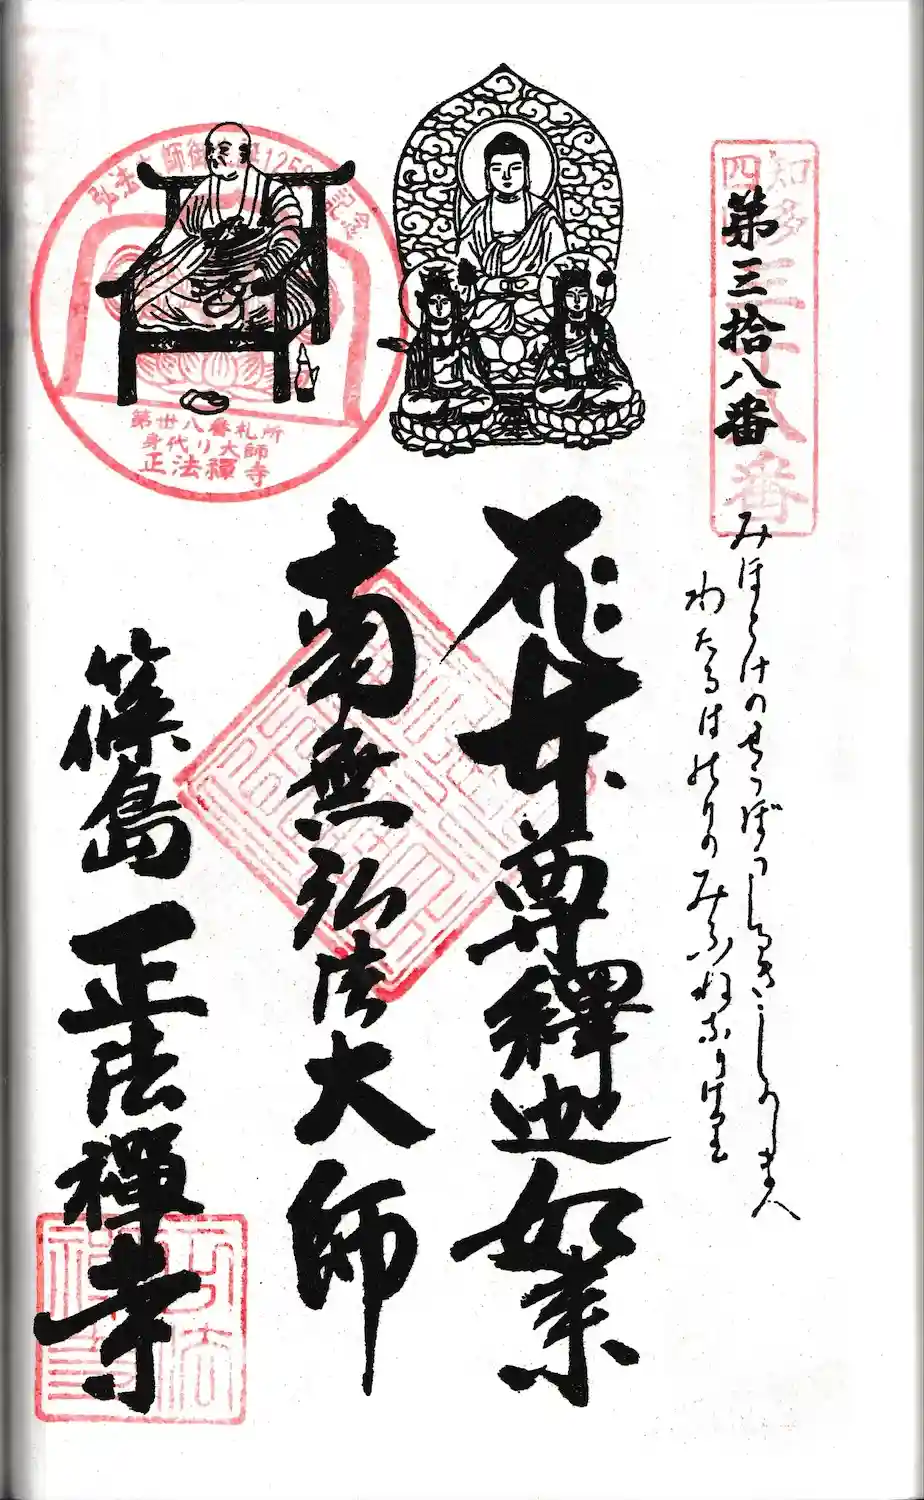 知多
四国
三十八番
第三拾八番
みほとけの
わたるはのりのみふねなりけり
本尊釋迦如来
南無弘法大師
篠島 正法禪寺
弘法大師御生誕1250年記念
第卅八番札所
身代り大師
正法禪寺